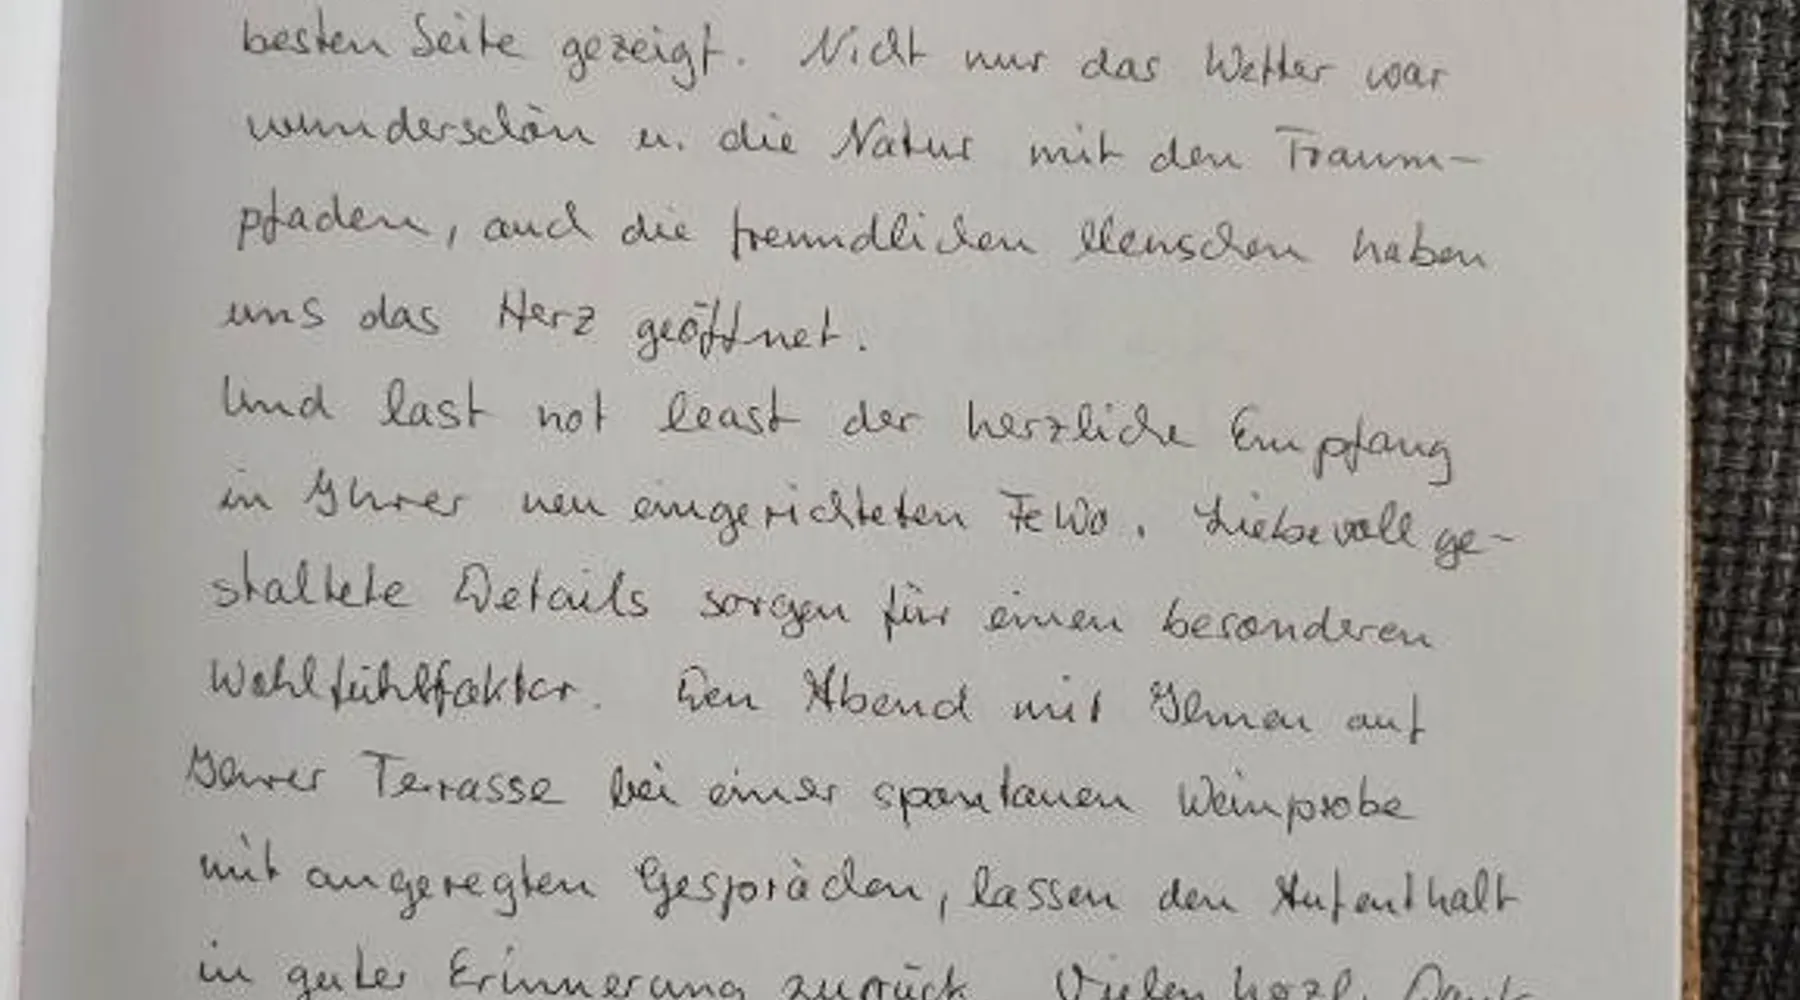 besten Seite gezeigt. Nicht nur das Wetter war
wunderschön u. die Natur mit den Traum-
pfaden, auch die freundlichen Menschen haben
uns das Herz geöffnet.
Und last not least der herzliche Empfang
in Ihrer neu eingerichteten FeWo. Liebevoll ge-
staltete Details sorgen für einen besonderen
Wohlfühlfaktor. Den Abend mit Ihnen auf
Ihrer Terrasse bei einer spontanen Weinprobe
mit angeregten Gesprächen, lassen den Aufenthalt
in guter Erinnerung zurück. Vielen herzl. Dank